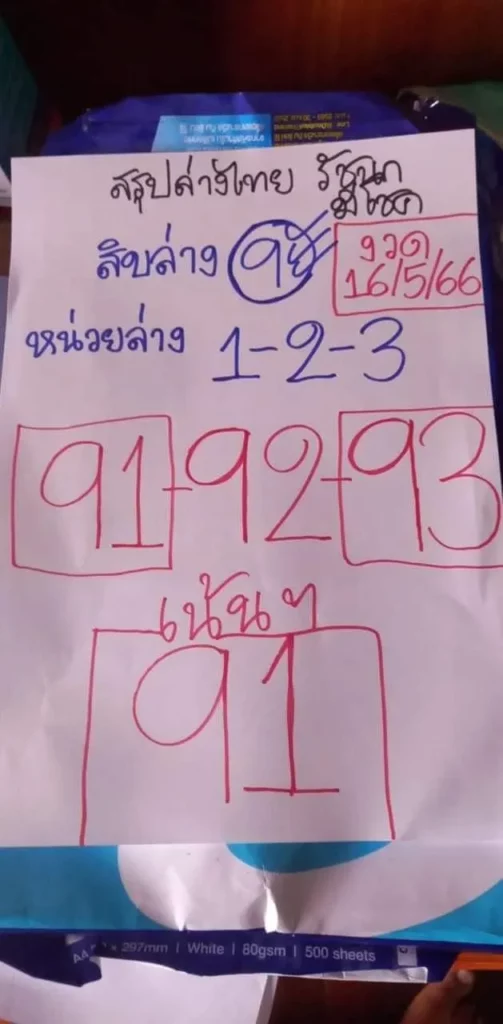 สรุปล่างไทย รัชนก
มีโชค
สิบล่าง 9
งวด
16/5/66
หน่วยล่าง 1-2-3
91-92-93
เน้นๆ
91
297mm | White | 80gsm | 500 sheets